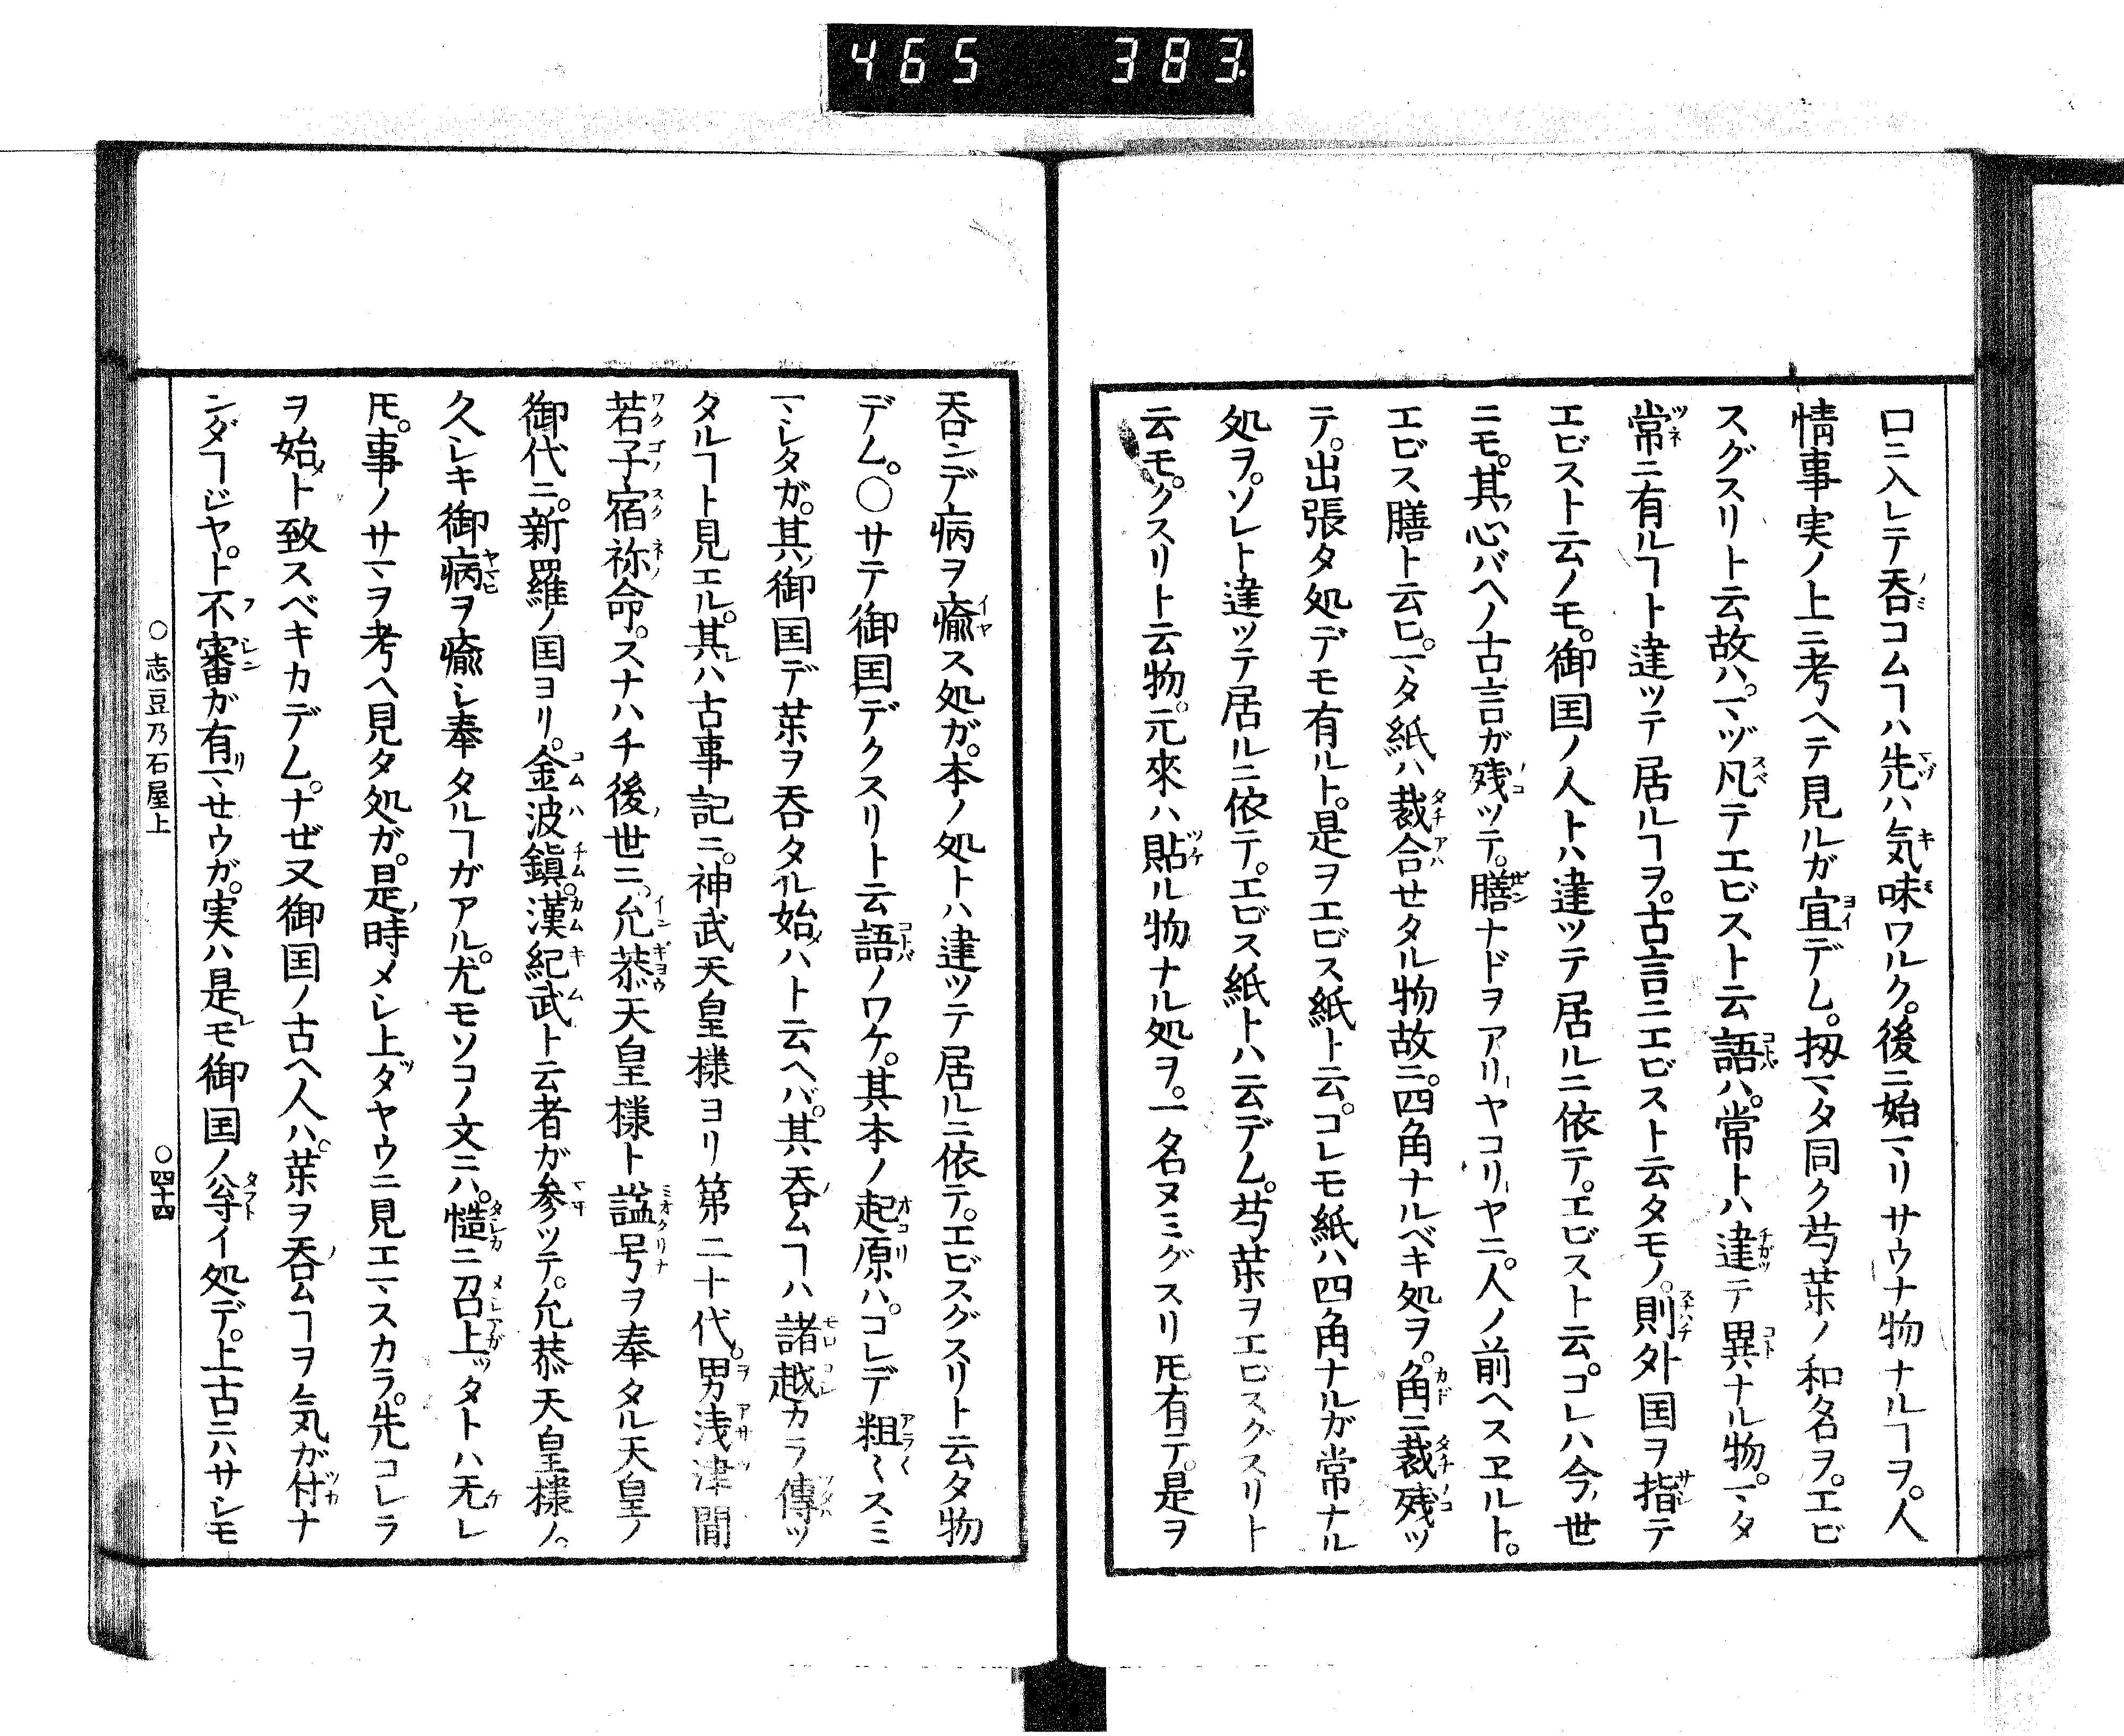 465 383.
口ニ入レテ呑コムヿハ先ハ気味ワルク。後ニ始マリサウナ物ナルヿヲ。人
情事実ノ上ニ考ヘテ見ルガ宜デム。扨マタ同ク芍薬ノ和名ヲ。エビ
スグスリト云故ハ。マヅ凡テエビスト云語ハ。常トハ違テ異ナル物。マタ
常ニ有ルヿト違ッテ居ルヿヲ。古言ニエビスト云タモノ。則外国ヲ指テ
エビスト云ノモ。御国ノ人トハ違ッテ居ルニ依テ。エビスト云。コレハ今世
ニモ。其心バヘノ古言ガ残ッテ。膳ナドヲアリヤコリヤニ。人ノ前ヘスヱルト。
エビス膳ト云ヒ。マタ紙ハ裁合せタル物故ニ。四角ナルベキ処ヲ。角ニ裁残ッ
テ。出張タ処デモ有ルト。是ヲエビス紙ト云。コレモ紙ハ四角ナルガ常ナル
処ヲ。ソレト違ッテ居ルニ依テ。エビス紙トハ云デム。芍薬ヲエビスグスリト
云モ。クスリト云物。元來ハ貼ル物ナル処ヲ。一名ヌミグスリ𪜈有テ。是ヲ
呑ンデ病ヲ癒ス処ガ。本ノ処トハ違ッテ居ルニ依テ。エビスグスリト云タ物
デム。〇サテ御国デクスリト云語ノワケ。其本ノ起原ハ。コレデ粗〱スミ
マシタガ。其御国デ薬ヲ呑タル始ハト云ヘバ。其呑ムヿハ諸越カラ傳ッ
タルヿト見エル。其ハ古事記ニ。神武天皇様ヨリ第二十代。男浅津間
若子宿祢命。スナハチ後世ニ。允恭天皇様ト謚号ヲ奉タル天皇ノ
御代ニ。新羅ノ国ヨリ。金波鎮。漢紀武ト云者ガ参ッテ。允恭天皇様ノ。
久シキ御病ヲ癒シ奉タルヿガアル。尤モソコノ文ニハ。慥ニ召上ッタトハ无レ
𪜈。事ノサマヲ考ヘ見タ処ガ。是時メシ上ダヤウニ見エマスカラ。先コレラ
ヲ始ト致スベキカデム。ナぜ又御国ノ古ヘ人ハ。薬ヲ呑ムヿヲ気ガ付ナ
ンダヿジヤ。ト不審ガ有マせウガ。実ハ是モ御国ノ尊イ処デ。上古ニハサシモ
〇志豆乃石屋上 〇四十四